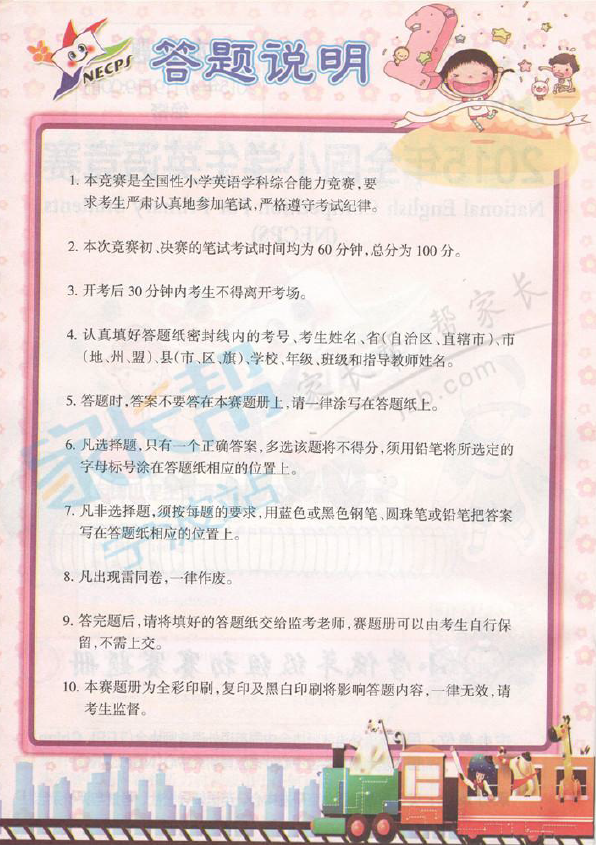 NECPS
答题说明
1. 本竞赛是全国性小学英语学科综合能力竞赛,要
求考生严肃认真地参加笔试,严格遵守考试纪律。
2. 本次竞赛初、决赛的笔试考试时间均为 60 分钟,总分为 100 分。
3. 开考后 30 分钟内考生不得离开考场。
4. 认真填好答题纸密封线内的考号、考生姓名、省(自治区、直辖市)、市
(地、州、盟)、县(市、区、旗)、学校、年级、班级和指导教师姓名。
5. 答题时,答案不要答在本赛题册上,请一律涂写在答题纸上。
6. 凡选择题,只有一个正确答案,多选该题将不得分,须用铅笔将所选定的
字母标号涂在答题纸相应的位置上。
7. 凡非选择题,须按每题的要求,用蓝色或黑色钢笔、圆珠笔或铅笔把答案
写在答题纸相应的位置上。
8. 凡出现雷同卷,一律作废。
9. 答完题后,请将填好的答题纸交给监考老师,赛题册可以由考生自行保
留,不需上交。
10. 本赛题册为全彩印刷,复印及黑白印刷将影响答题内容,一律无效,请
考生监督。
家长帮